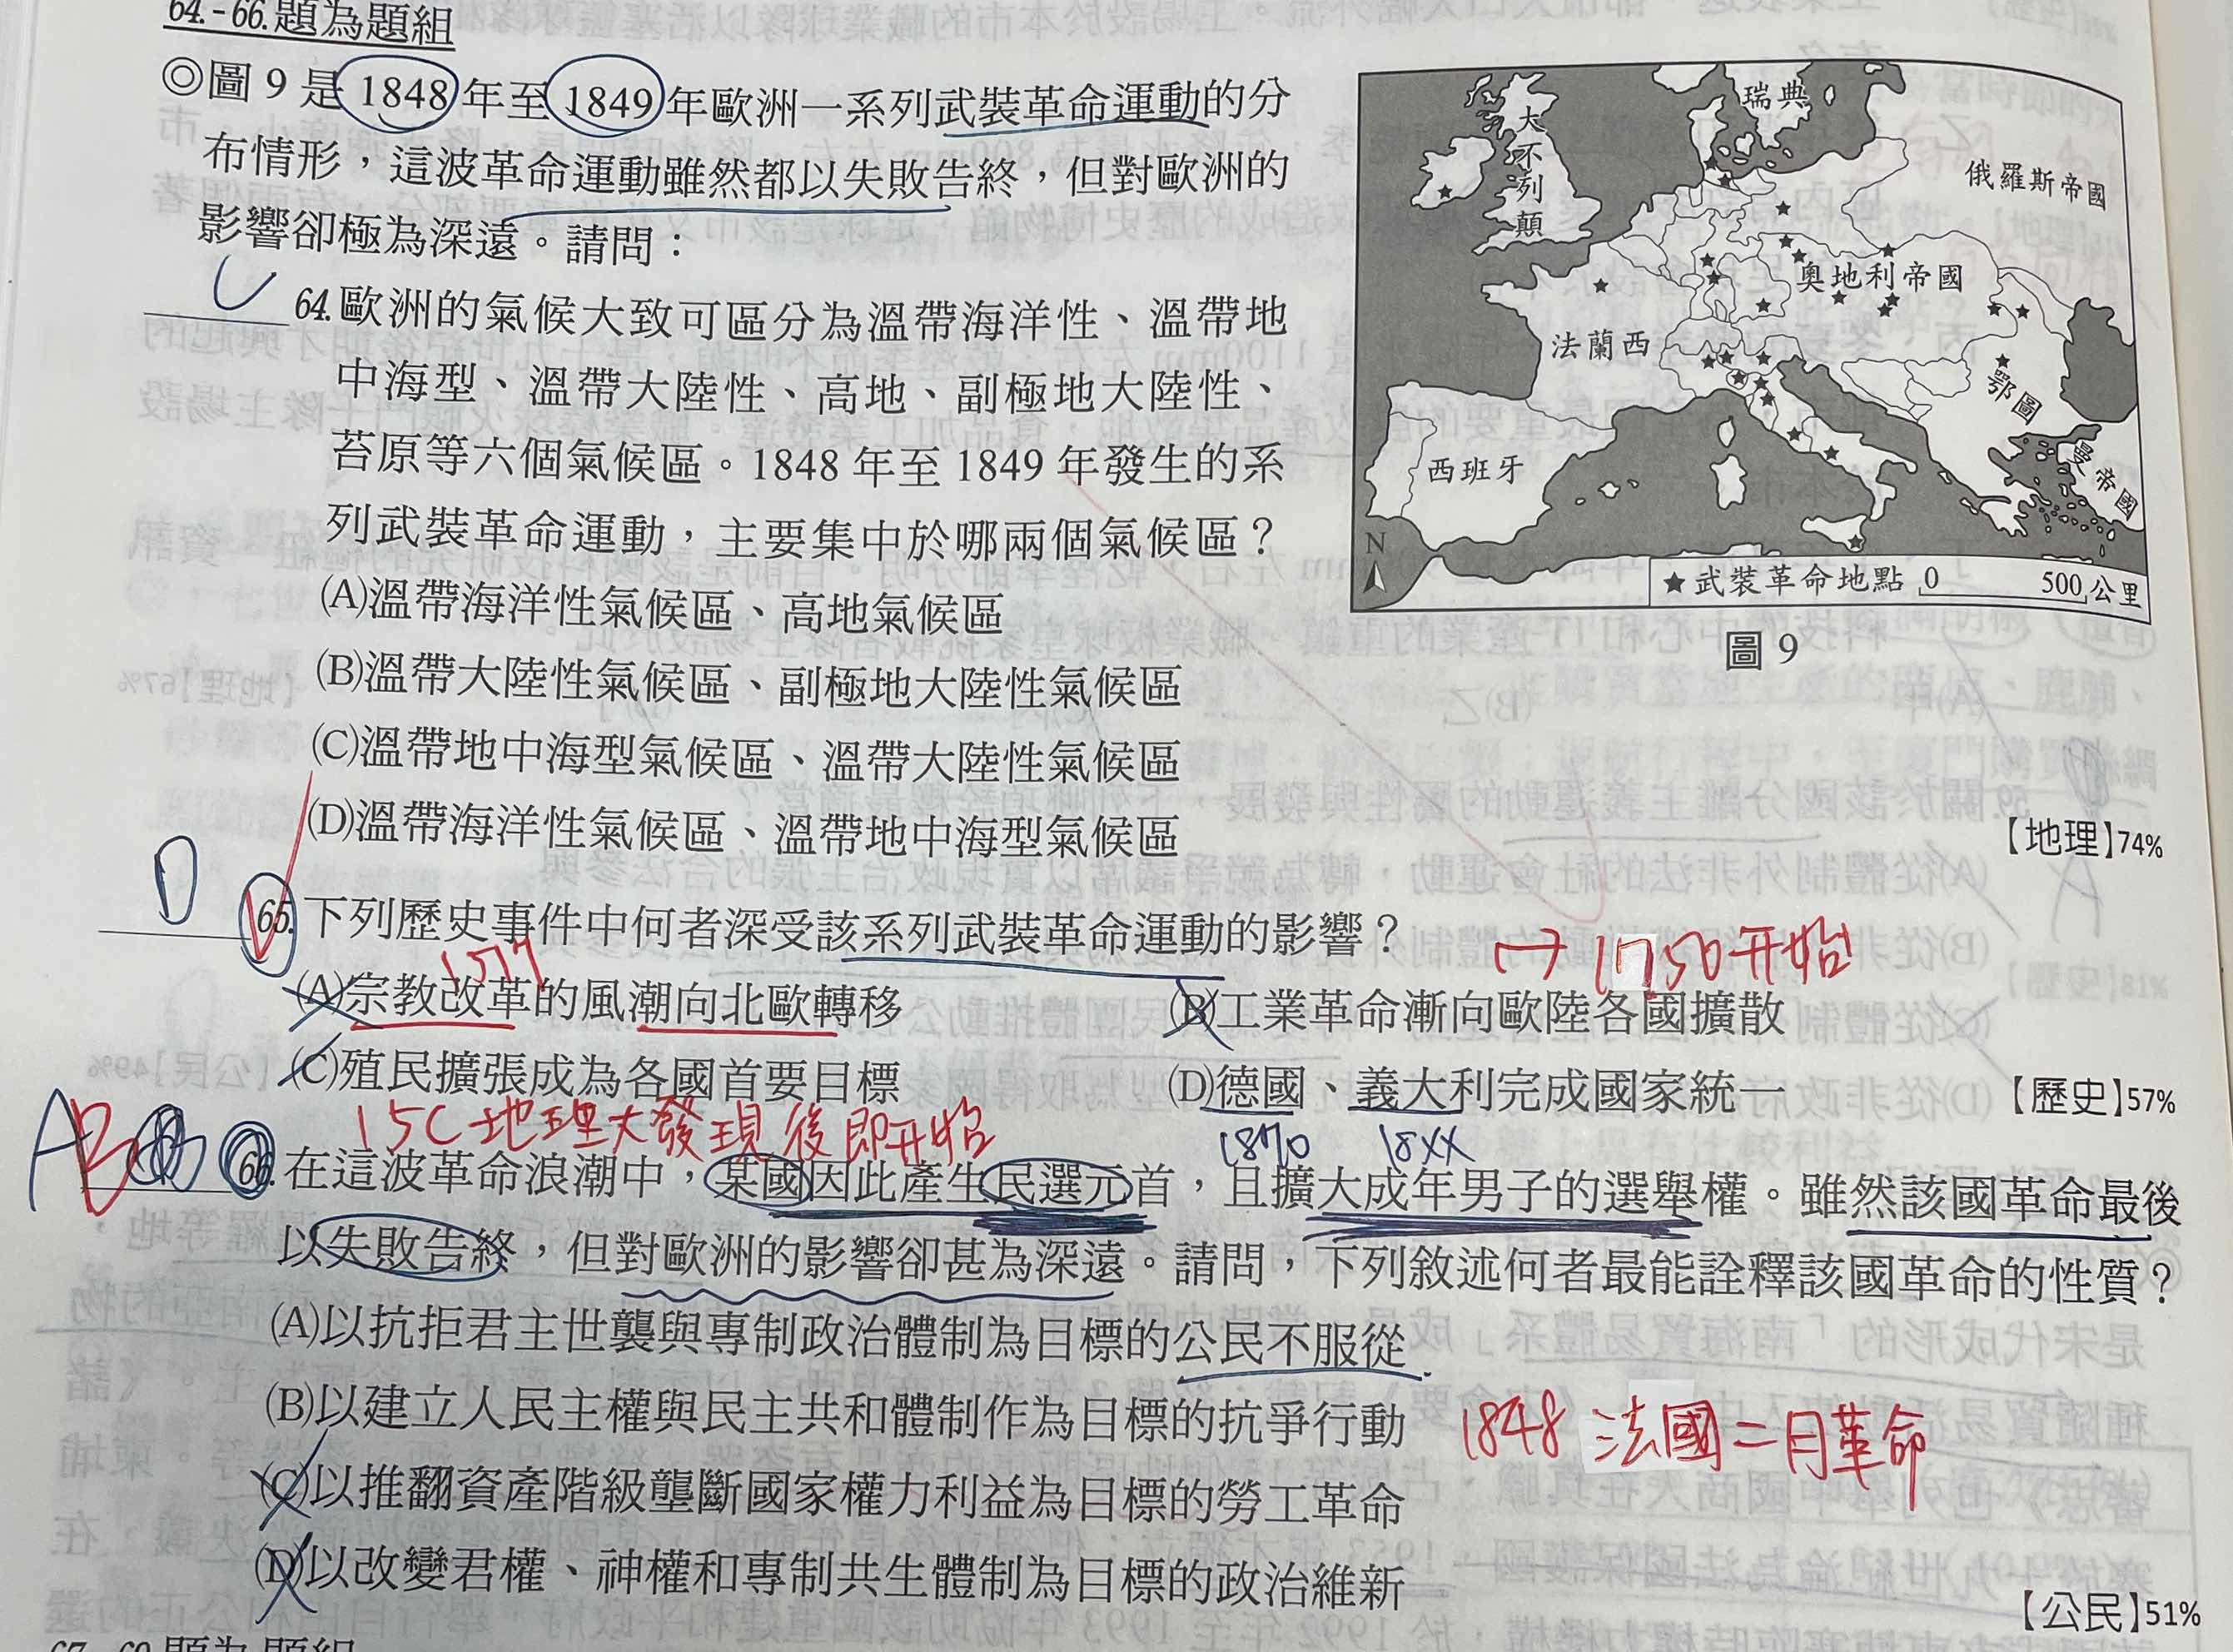 64.-66.題為題組
◎圖 9 是 1848 年至 1849 年歐洲一系列武裝革命運動的分
布情形，這波革命運動雖然都以失敗告終，但對歐洲的
影響卻極為深遠。請問：
C 64.歐洲的氣候大致可區分為溫帶海洋性、溫帶地
中海型、溫帶大陸性、高地、副極地大陸性、
苔原等六個氣候區。1848 年至 1849 年發生的系
列武裝革命運動，主要集中於哪兩個氣候區？
(A)溫帶海洋性氣候區、高地氣候區
(B)溫帶大陸性氣候區、副極地大陸性氣候區
(C)溫帶地中海型氣候區、溫帶大陸性氣候區
(D)溫帶海洋性氣候區、溫帶地中海型氣候區
【地理】74%
大不列顛
瑞典
俄羅斯帝國
奧地利帝國
法蘭西
鄂圖曼帝國
西班牙
N
★武裝革命地點 0 500公里
圖 9
D 65.下列歷史事件中何者深受該系列武裝革命運動的影響？
1517
→ 1750開始
(A)宗教改革的風潮向北歐轉移 (B)工業革命漸向歐陸各國擴散
(C)殖民擴張成為各國首要目標 (D)德國、義大利完成國家統一
【歷史】57%
15C 地理大發現後即開始
1870 18XX
A B 66.在這波革命浪潮中，某國因此產生民選元首，且擴大成年男子的選舉權。雖然該國革命最後
以失敗告終，但對歐洲的影響卻甚為深遠。請問，下列敘述何者最能詮釋該國革命的性質？
(A)以抗拒君主世襲與專制政治體制為目標的公民不服從
(B)以建立人民主權與民主共和體制作為目標的抗爭行動
1848 法國二月革命
(C)以推翻資產階級壟斷國家權力利益為目標的勞工革命
(D)以改變君權、神權和專制共生體制為目標的政治維新
【公民】51%